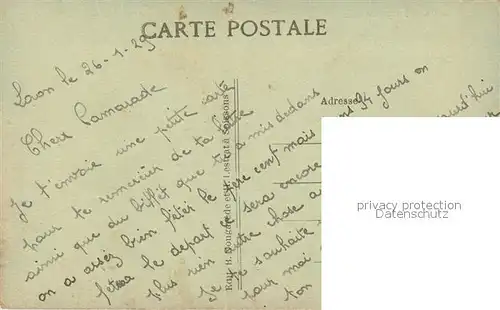 CARTE POSTALE
Laon le 26-1-29
Cher Camarade
Adresse
Je t'envoie une petite carte
pour te remercier de ta
ainsi que du billet que tu a mis dedans
on a assez bien fêter le père cent mais
fêtera le départ sera encore
plus rien autre chose a
Je te souhaite
pour moi
ton
94 jours on
aujourd'hui
Edit. H. Nougarède et H. Lestrat à Soissons
privacy protection
Datenschutz